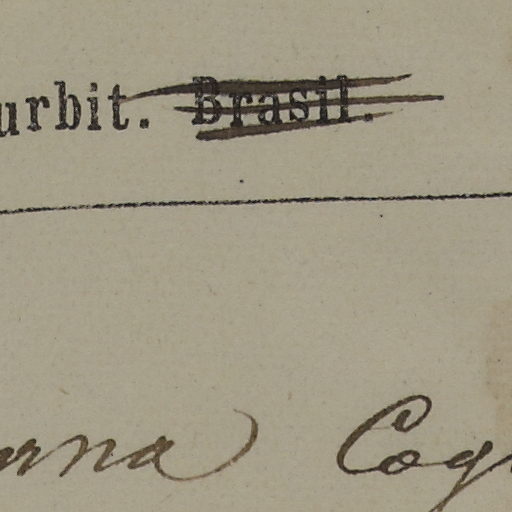 urbit. Brasil.
rna Cog